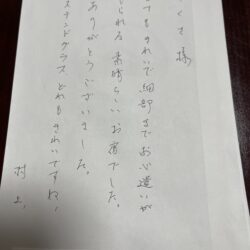 くさ様
てもきれいで細部までお心遣いが
じられる素晴らしいお宿でした。
ありがとうございました。
ステンドグラスどれもきれいですね、
村上